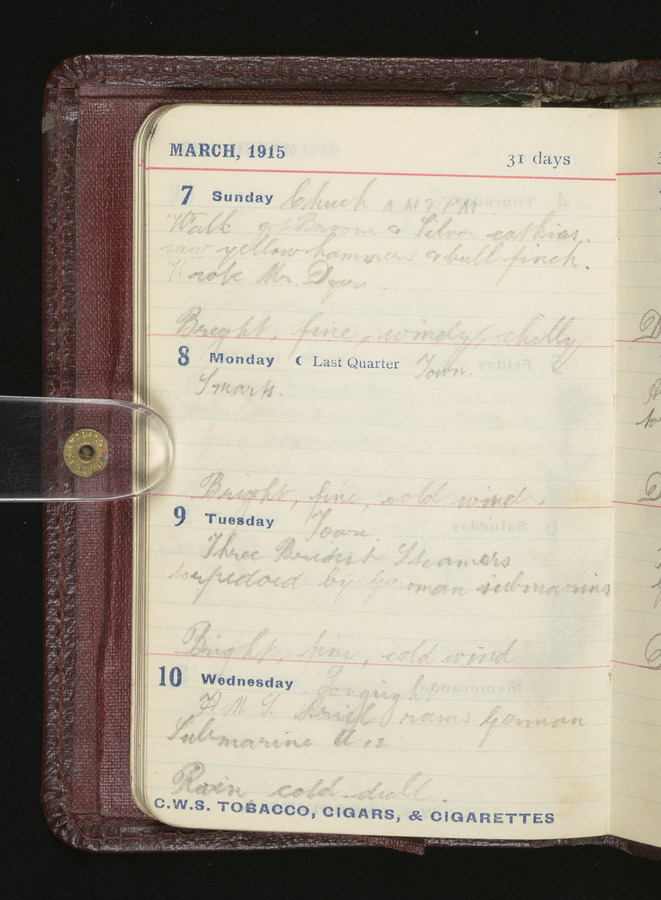 MARCH, 1915
31 days
7 Sunday Church A M & PM
Walk got Broom & Silver catkins.
saw yellow hammers & bullfinch.
Wrote Mr. Dyer.
Bright, fine, windy, chilly
8 Monday ☾ Last Quarter Town.
Smarts.
Bright, fine, cold wind.
9 Tuesday Town.
Three British Steamers
torpedoed by German submarines
Bright, fine, cold wind
10 Wednesday
H M S. Ariel rams German
Submarine U 12
Rain cold dull.
C.W.S. TOBACCO, CIGARS, & CIGARETTES